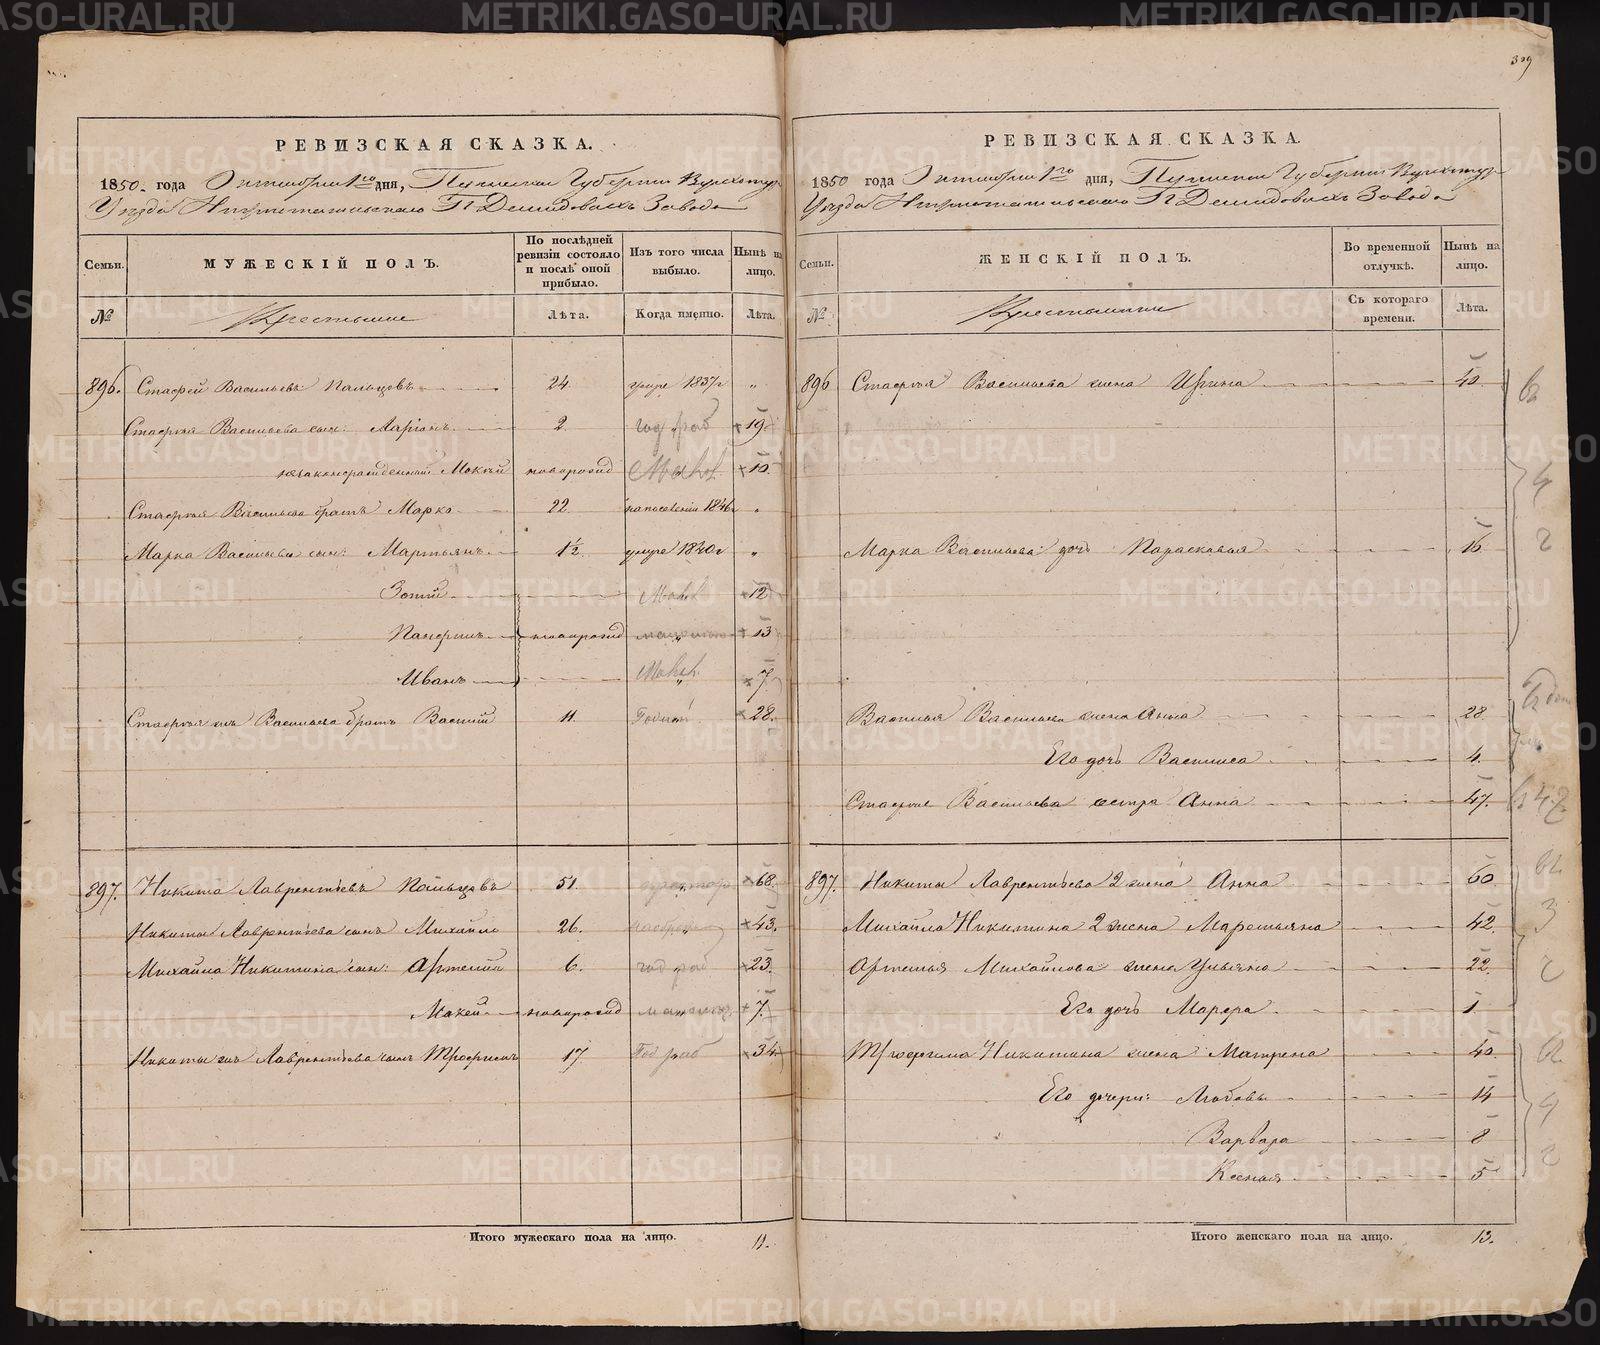 329
РЕВИЗСКАЯ СКАЗКА.
1850 года Октября 1го дня, Пермской Губернии Верхотур
Уезда Нижнетагильскаго Г.г. Демидовыхъ Завода
Семьи. МУЖЕСКІЙ ПОЛЪ. По послѣдней ревизіи состояло и послѣ оной прибыло. Изъ того числа выбыло. Нынѣ на лицо.
№ Крестьяне Лѣта. Когда именно. Лѣта.
896. Стафей Васильевъ Пальцовъ 24 умре 1837г „
Стафея Васильева сынъ: Ларіонъ 2. год раб 19
незаконорожденный Мокей новорожд 10
Стафея Васильева братъ Марко 22 на поселеніи 1846г „
Марка Васильева сынъ: Мартьянъ 1½ умре 1840г „
Зотій 12
Панфилъ новорожд 13
Иванъ 7
Стафея жъ Васильева братъ Василій 11. 28.
897. Никита Лаврентьевъ Пальцовъ 51. 68.
Никиты Лаврентьева сынъ Михайло 26. 43.
Михайла Никитина сынъ: Артемій 6. год раб 23.
Мокей новорожд 7.
Никиты жъ Лаврентьева сынъ Трофимъ 17. Год раб 34.
Итого мужескаго пола на лицо. 11.
РЕВИЗСКАЯ СКАЗКА.
1850 года Октября 1го дня, Пермской Губернии Верхотур
Уезда Нижнетагильскаго Г.г. Демидовыхъ Завода
Семьи. ЖЕНСКІЙ ПОЛЪ. Во временной отлучкѣ. Нынѣ на лицо.
№ Крестьянки Съ котораго времени. Лѣта.
896 Стафея Васильева жена Ирина 40.
Марка Васильева дочь Параскавья 16
Василья Васильева жена Анна 28
Его дочь Василиса 4.
Стафея Васильева сестра Анна 47.
897. Никиты Лаврентьева 2 жена Анна 60
Михайла Никитина 2 жена Маремьяна 42.
Артемья Михайлова жена Ульяна 22.
Его дочь Марфа 1
Трофима Никитина жена Матрена 40
Его дочери: Любовь 14
Варвара 8
Ксенья 5
Итого женскаго пола на лицо. 13.
METRIKI.GASO-URAL.RU